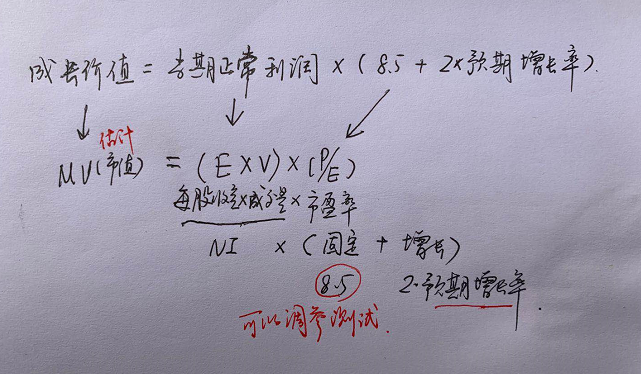 成长价值 = 当期正常利润 × ( 8.5 + 2×预期增长率 ).
估计
MV(市值) = ( E × V ) × ( P/E )
每股收益×成交量 × 市盈率
NI × ( 固定 + 增长 )
8.5 2·预期增长率.
可以调参测试.